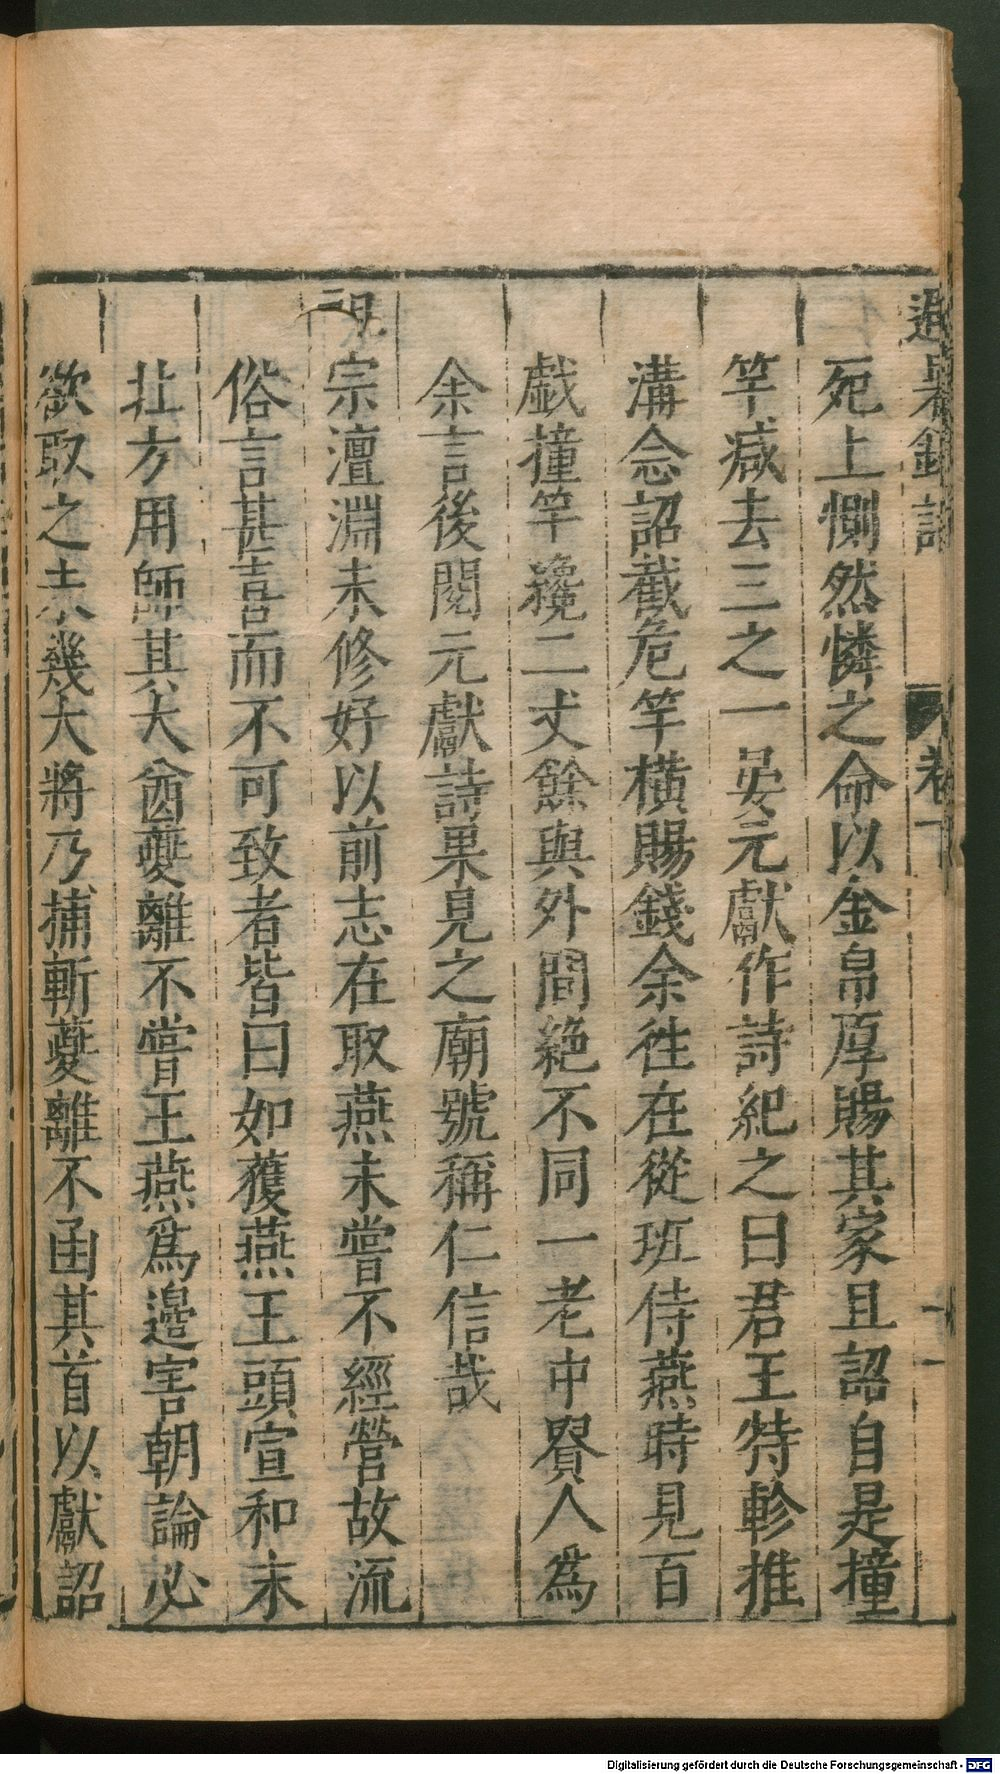 避暑錄話 卷下 十一
死上惻然憐之命以金帛厚賜其家且詔自是撞
竿減去三之一晏元獻作詩紀之曰君王特軫推
溝念詔截危竿橫賜錢余徃在從班侍燕時見百
戲撞竿纔二丈餘與外間絶不同一老中貴人爲
余言後閱元獻詩果見之廟號稱仁信哉
宗澶淵未修好以前志在取燕未嘗不經營故流
俗言甚喜而不可致者皆曰如獲燕王頭宣和末
壯方用師其大酋夔離不嘗王燕爲邊害朝論必
欲取之未幾大將乃捕斬夔離不函其首以獻詔
Digitalisierung gefördert durch die Deutsche Forschungsgemeinschaft - DFG